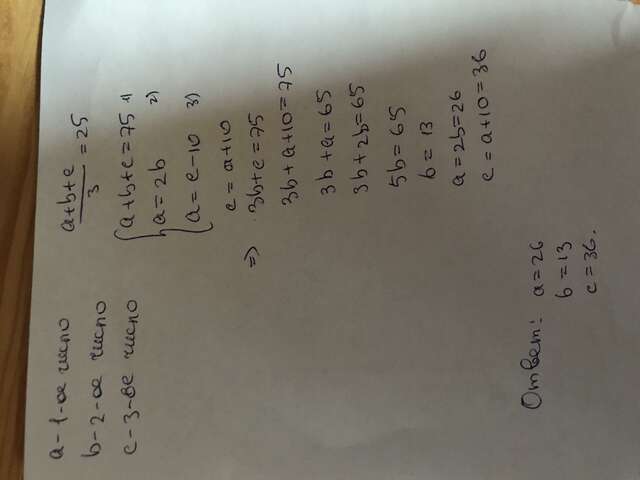 a - 1 - ое число
b - 2 - ое число
c - 3 - ее число
a+b+c
3
= 25
a+b+c=75 1)
a = 2b 2)
a = c-10 3)
c = a+10
=> 3b+c=75
3b+a+10=75
3b+a=65
3b+2b=65
5b=65
b = 13
a=2b=26
c=a+10=36
Ответ: a=26
b=13
c=36.